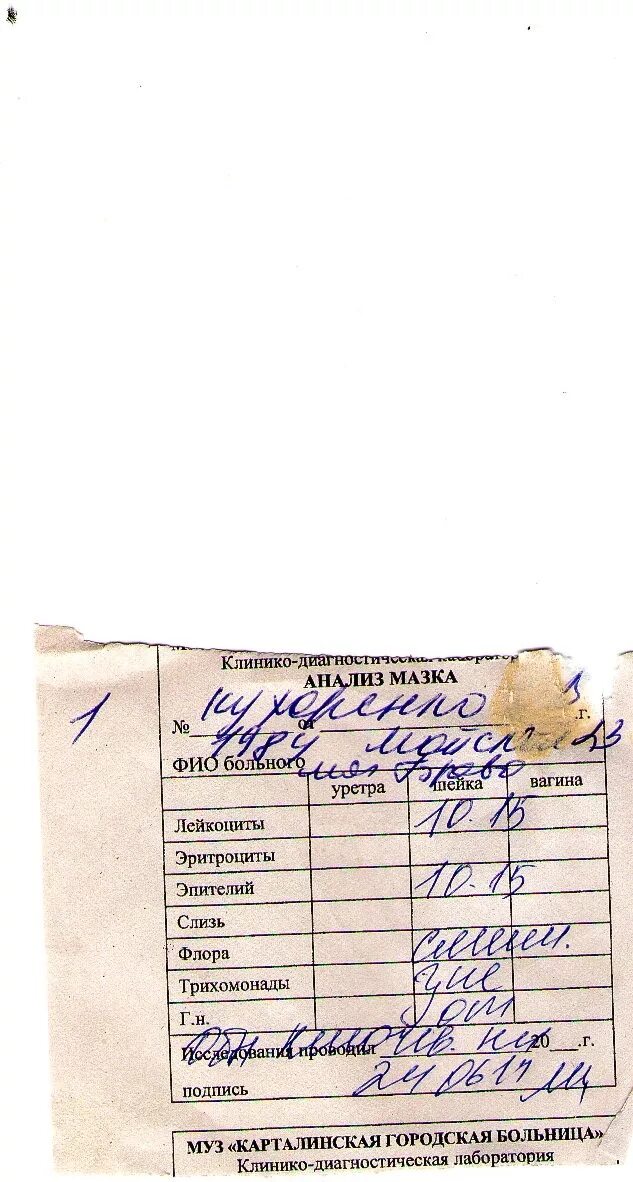 Клинико-диагностическая лаборатор
АНАЛИЗ МАЗКА
1
Кухаренко
№ от .г.
1984
ФИО больного
уретра шейка вагина
Лейкоциты 10-15
Эритроциты
Эпителий 10-15
Слизь
Флора смеш.
Трихомонады
Г.н.
Исследования проводил 20 .г.
подпись 24 06 11
МУЗ «КАРТАЛИНСКАЯ ГОРОДСКАЯ БОЛЬНИЦА»
Клинико-диагностическая лаборатория